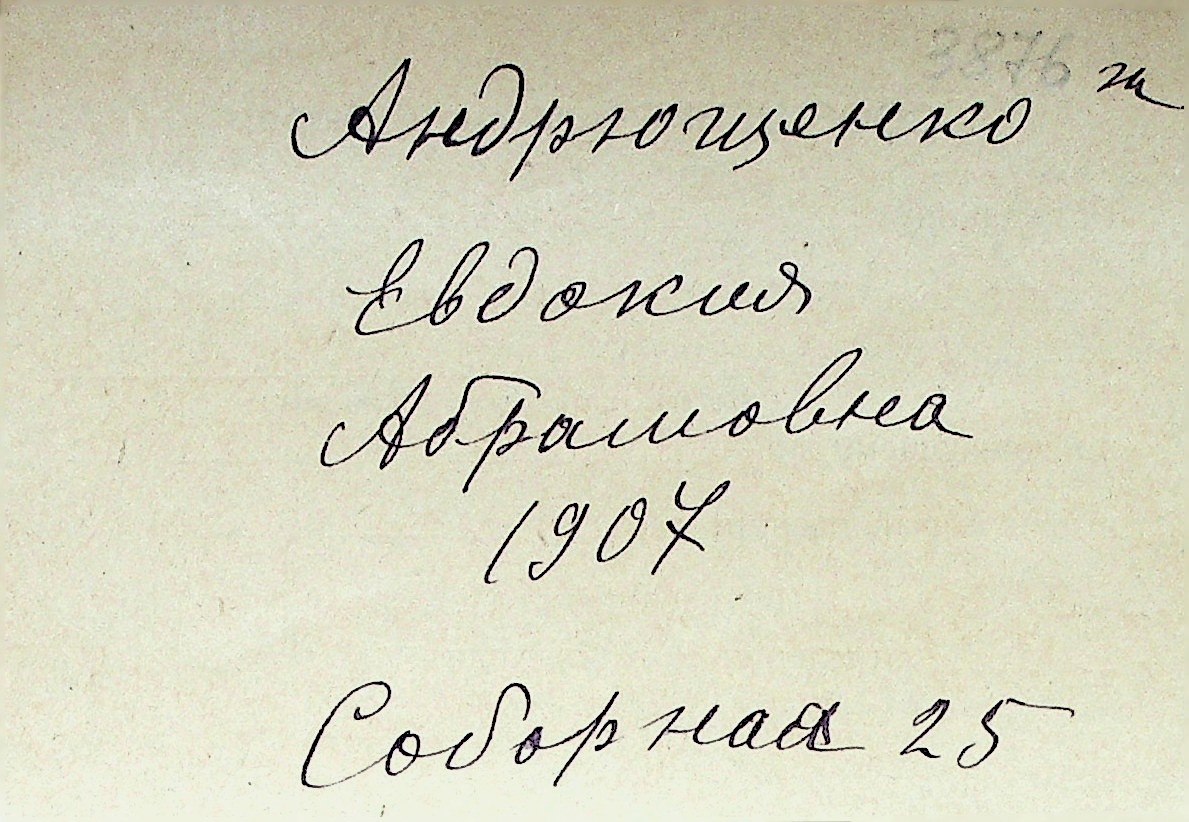 3876
Андрющенко ж
Евдокия
Абрамовна
1907
Соборная 25